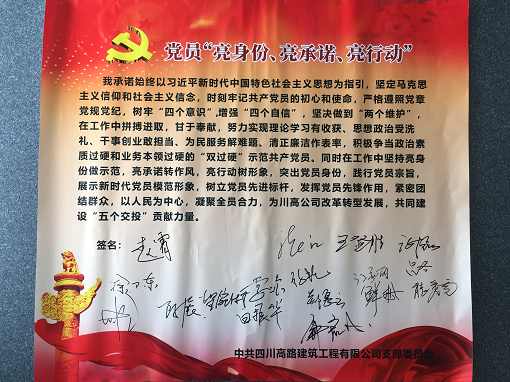 党员“亮身份、亮承诺、亮行动”
我承诺始终以习近平新时代中国特色社会主义思想为指引，坚定马克思
主义信仰和社会主义信念，时刻牢记共产党员的初心和使命，严格遵照党章
党规党纪，树牢“四个意识”,增强“四个自信”，坚决做到“两个维护”，
在工作中拼搏进取，甘于奉献，努力实现理论学习有收获、思想政治受洗
礼、干事创业敢担当、为民服务解难题、清正廉洁作表率，积极争当政治素
质过硬和业务本领过硬的“双过硬”示范共产党员。同时在工作中坚持亮身
份做示范，亮承诺转作风，亮行动树形象，突出党员身份，践行党员宗旨，
展示新时代党员模范形象，树立党员先进标杆，发挥党员先锋作用，紧密团
结群众，以人民为中心，凝聚全员合力，为川高公司改革转型发展，共同建
设“五个交投”贡献力量。
签名：
中共四川高路建筑工程有限公司支部委员会